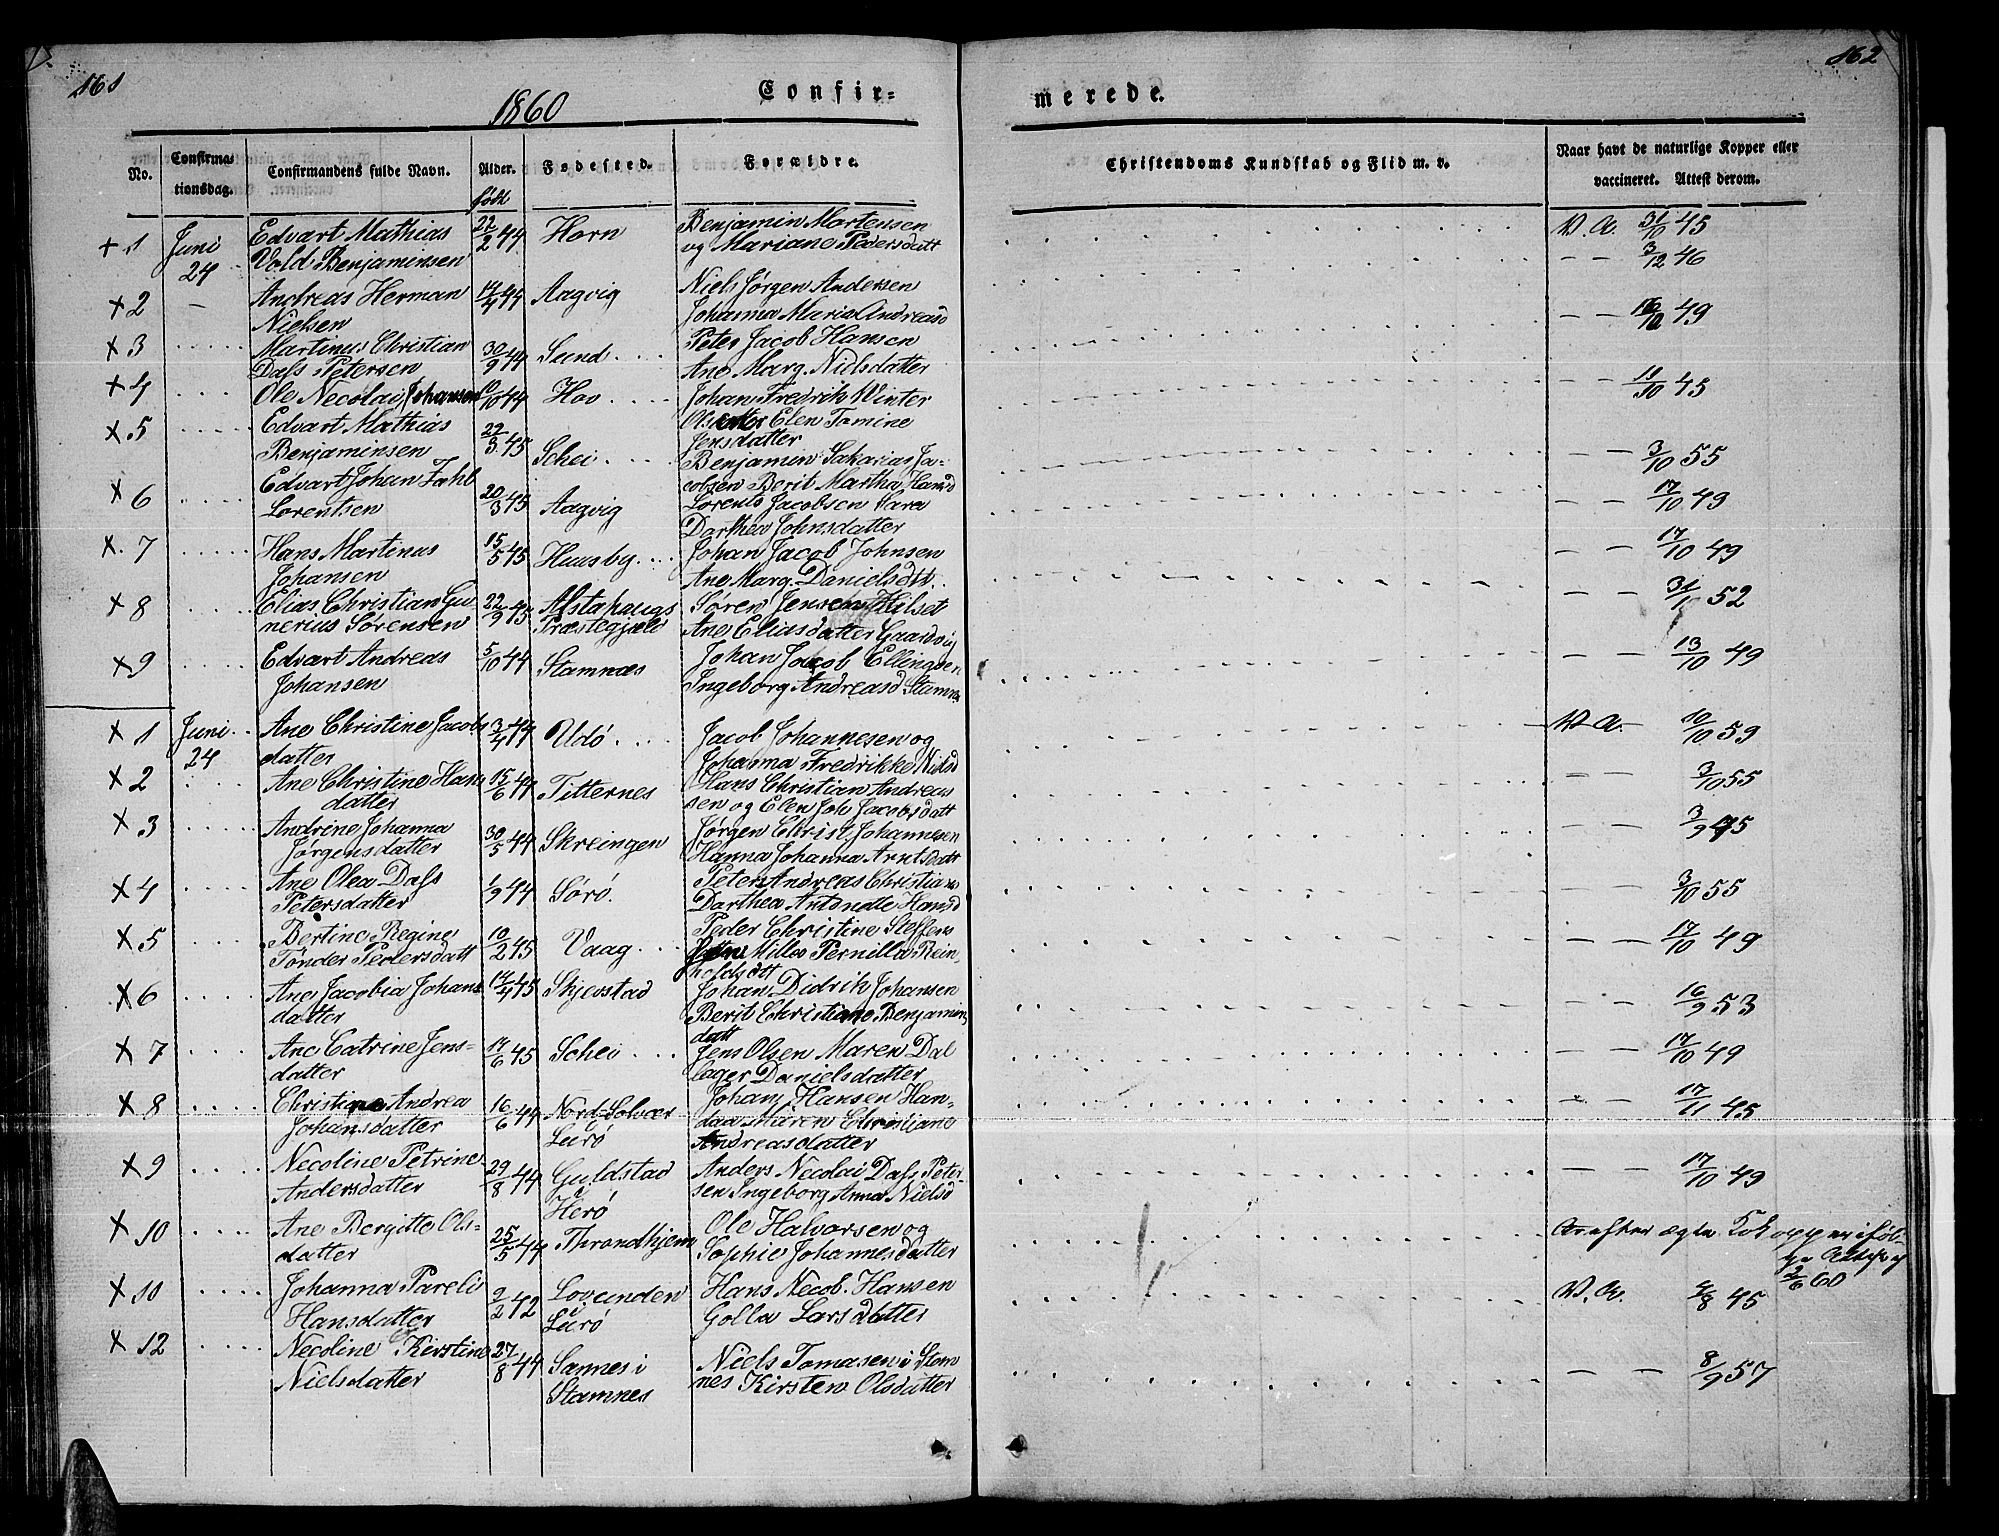 161
1860
Confir-
No.
Confirma-
tionsdag.
Confirmandens fulde Navn.
Alder.
født
Fødested.
Forældre.
+ 1 Juni 24 Edvart Mathias 22/2 44 Horn Benjamin Mortensen
Vold Benjaminsen og Mariane Pedersdatt
x 2 – Andreas Herman 14/4 44 Aagvig Niels Jørgen Andersen
Nielsen Johanna Maria Andreasd
x 3 Martinus Christian 30/9 44 Sund Peter Jacob Hansen
Dass Petersen Ane Marg. Nielsdatter
x 4 Ole Necolai Johansen 10/10 44 Hov Johan Fredrik Winter
x 5 Edvart Mathias 22/3 45 Schei Elen Tomine
Jensdatter
Benjaminsen Benjamin Sakarias Ja-
cobsen Berit Martha Hansd
x 6 Edvart Johan Fahl 20/3 45 Aagvig Lorents Jacobsen Sara
Lorentsen Darthea Johnsdatter
x 7 Hans Martinus 15/5 45 Huusby Johan Jacob Johnsen
Johansen Ane Marg. Danielsdtt.
x 8 Elias Christian Gu- 22/9 45 Alstahaugs Søren Jensen Hilset
nerius Sørensen Præstegjæld Ane Eliasdatter Gaardvig
x 9 Edvart Andreas 5/10 44 Stamnæs Johan Jacob Ellingsen
Johansen Ingeborg Andreasd Stamnæs
x 1 Juni 24 Ane Christine Jacobs 3/4 44 Udø Jacob Johannesen og
datter Johanna Fredrikke Nielsd
x 2 Ane Christine Hans 15/6 44 Titternes Hans Christian Andreas
datter sen og Elen Joh Jacobsdatt
x 3 Andrine Johanna 30/5 44 Skreingen Jørgen Christ. Johannesen
Jørgensdatter Hanna Johanna Arntsdatt
x 4 Ane Olea Dass 1/9 44 Sørø. Peter Andreas Christians
Petersdatter Darthea Antonette Hansd
x 5 Bertine Regine 10/2 45 Vaag Peder Christine Steffens
Tønder Pedersdatt Milles Pernilla Rein-
holdsdtt
x 6 Ane Jacobia Johans 14/4 45 Skjevstad Johan Didrik Johansen
datter Berit Christiane Benjamins
datt
x 7 Ane Catrine Jens- 14/6 45 Schei Jens Olsen Maren Dal
datter lager Danielsdatter
x 8 Christiane Andrea 16/6 44 Nord-Solvær Johans Hansen Han-
Johansdatter Lurø Maren Christiane
Andreasdatter
x 9 Necoline Petrine 29/8 44 Guldstad Anders Necolai Dass Peter-
Andersdatter i Herø sen Ingeborg Anna Nielsd
x 10 Ane Bergitte Ols- 25/5 44 Throndhjem Ole Halvorsen og
datter Sophie Johannesdatter
x 10 Johanna Pareli 9/2 42 Lovunden Hans Necob. Hansen
Hansdatter i Lurø Golla Larsdatter
x 12 Necoline Kirstine 27/8 44 Sannes i Niels Tomasen i Stam
Nielsdatter Stamnes nes Kirsten Olsdatter
162
merede.
Christendoms Kundskab og Flid m. v.
Naar havt de naturlige Kopper eller
vaccineret. Attest derom.
V. A. 31/10 45
– – 3/12 46
– – 16/10 49
– – 11/10 45
– – 3/10 55
– – 17/10 49
– – 17/10 49
– – 31/1 52
– – 13/10 49
V. A. 10/10 59
– – 3/10 55
– – 3/9 45
– – 3/10 55
– – 17/10 49
– – 16/9 53
– – 17/10 49
– – 17/11 45
– – 17/10 49
Ar efter ægte Kokopper iføl-
ge Attest af
2/6 60
V. A. 2/8 45
– – 8/9 57